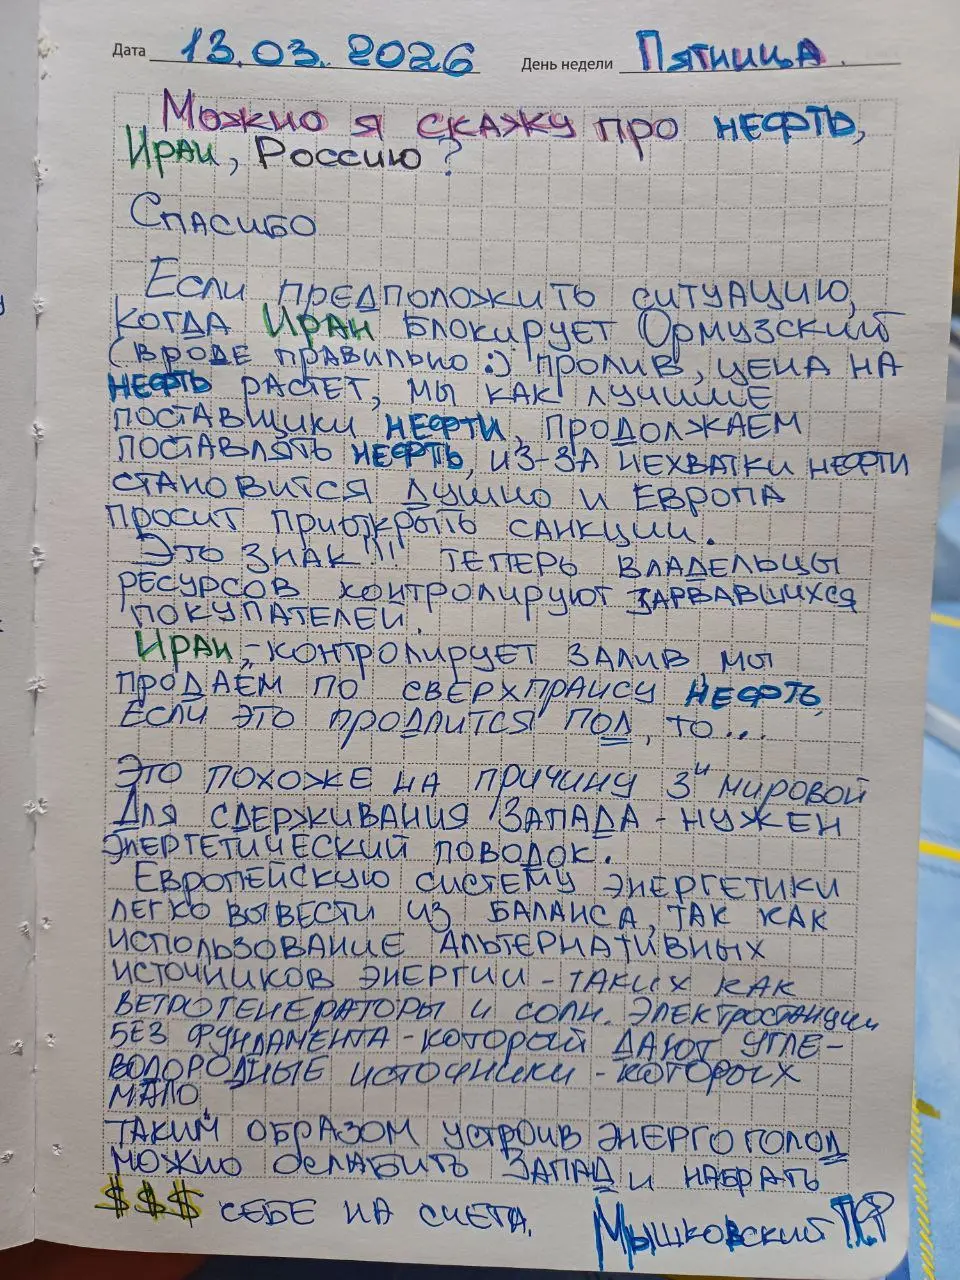 Дата 13.03.2026 День недели Пятница.
Можно я скажу про нефть,
Иран, Россию?
Спасибо
Если предположить ситуацию,
когда Иран блокирует Ормузский
(вроде правильно :) пролив, цена на
нефть растет, мы как лучшие
поставщики нефти, продолжаем
поставлять нефть, из-за нехватки нефти
становится душно и Европа
просит приоткрыть санкции.
Это знак!!! теперь владельцы
ресурсов контролируют зарвавшихся
покупателей.
Иран,-контролирует залив, мы
продаём по сверхпрайсу нефть,
если это продлится год, то...
Это похоже на причину 3й мировой
Для сдерживания Запада - нужен
энергетический поводок.
Европейскую систему энергетики
легко вывести из баланса, так как
использование альтернативных
источников энергии - таких как
ветрогенераторы и солн. электростанции
без фундамента - который дают угле-
водородные источники - которых
мало,
таким образом устроив энергоголод
можно ослабить Запад и набрать
$$$ себе на счета.
Мышковский